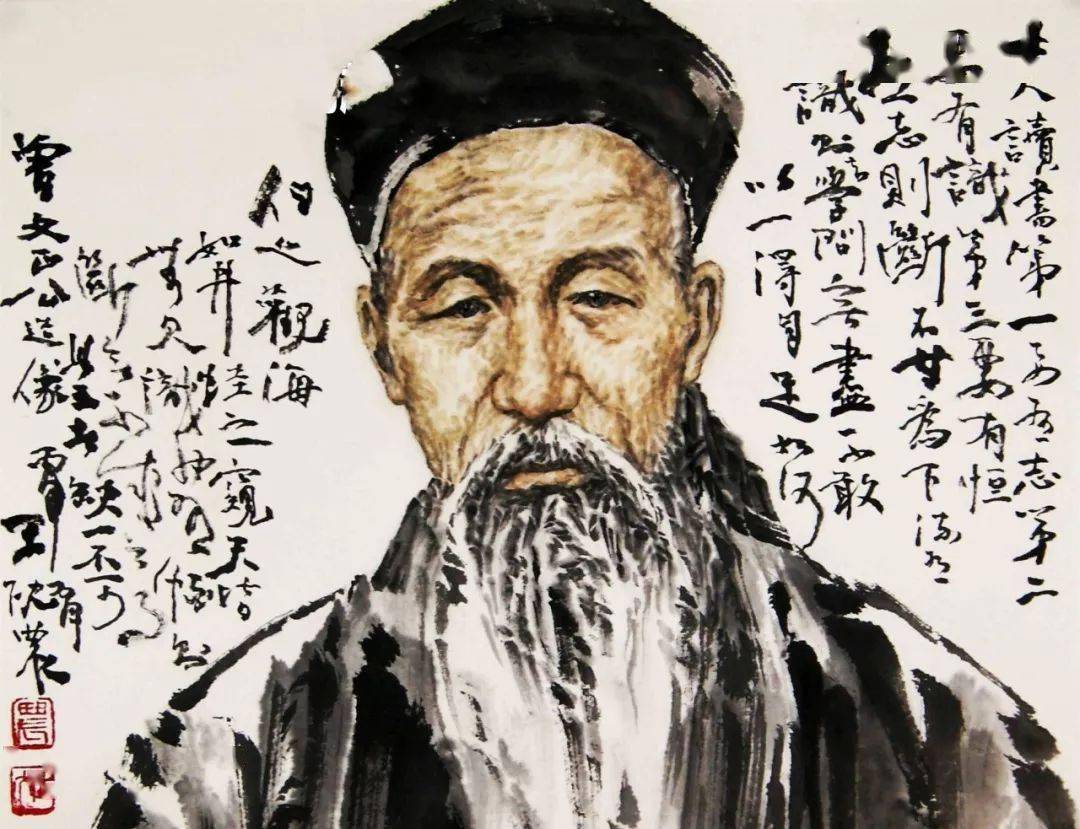 士人讀書第一要有志第二
要有識第三要有恒
有志則斷不甘為下流有
識則知學問無盡不敢
以一得自足如河
伯之觀海
如井蛙之窺天皆
無見識也有恒則
斷無不成之事
此三者缺一不可
曾文正公造像
農